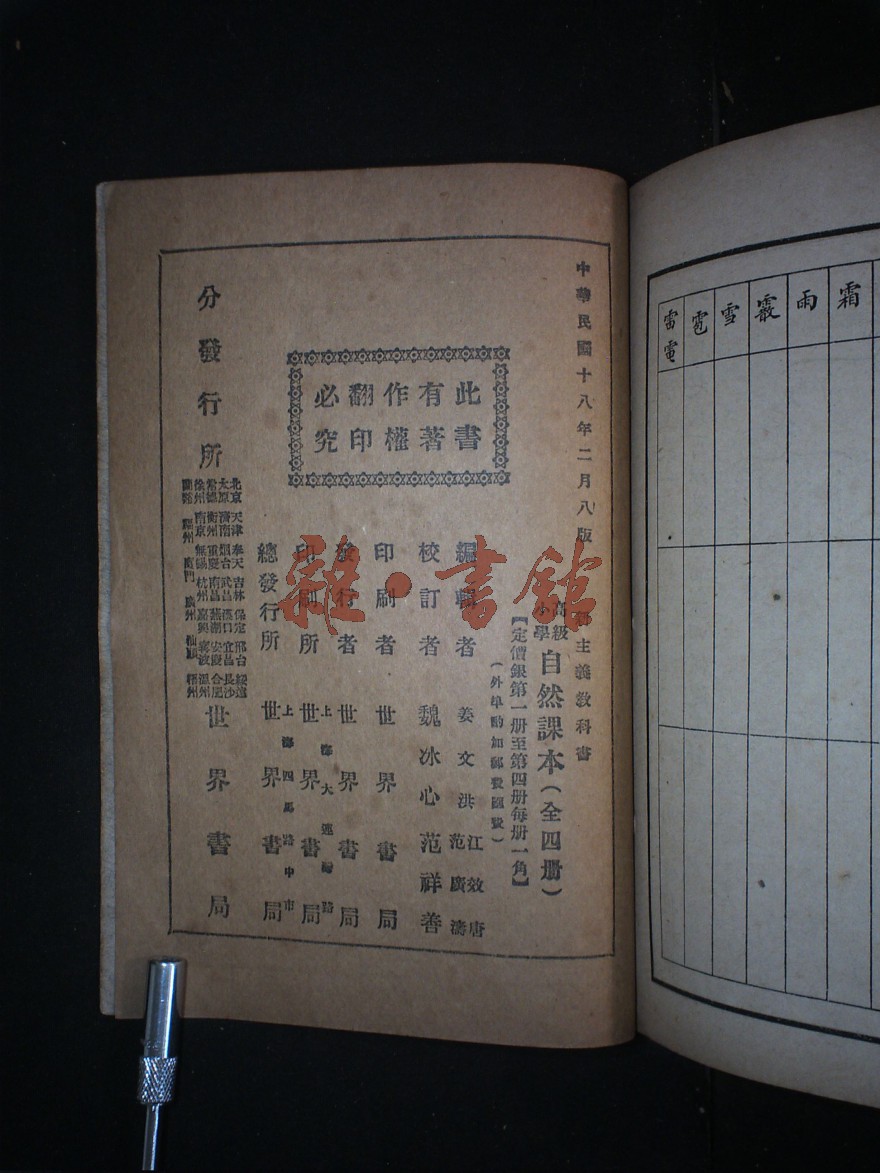 霜
雨
霰
雪
雹
雷電
中華民國十八年二月八版
主義教科書
高級小學 自然課本（全四册）
【定價銀第一册至第四册每册一角】
（外埠酌加郵費匯費）
此書
有著
作權
翻印
必究
編輯者 姜文洪 江效唐 范廣濤
校訂者 魏冰心 范祥善
印刷者 世界書局
發行者 世界書局
印刷所 上海大連灣路 世界書局
總發行所 上海四馬路中市 世界書局
分發行所
北京 天津 奉天 吉林 保定 邢台 綏遠
太原 濟南 烟台 武昌 漢口 宜昌 長沙
常德 衡州 重慶 南昌 蕪湖 安慶 合肥
徐州 南京 無錫 杭州 嘉興 寧波 溫州
蘭谿 福州 廈門 廣州 汕頭 梧州
世界書局
雜·書館